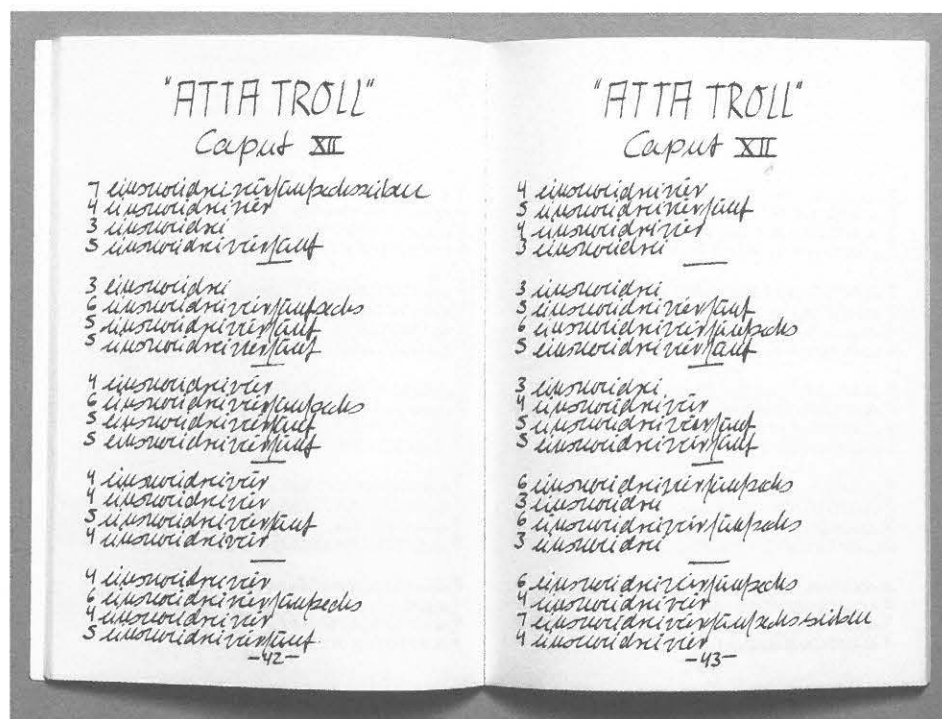 "ATTA TROLL"
Caput XII
7 einszweidreivierfünfsechssieben
4 einszweidreivier
3 einszweidrei
5 einszweidreivierfünf
3 einszweidrei
6 einszweidreivierfünfsechs
5 einszweidreivierfünf
5 einszweidreivierfünf
4 einszweidreivier
6 einszweidreivierfünfsechs
5 einszweidreivierfünf
5 einszweidreivierfünf
4 einszweidreivier
4 einszweidreivier
5 einszweidreivierfünf
4 einszweidreivier
4 einszweidreivier
6 einszweidreivierfünfsechs
4 einszweidreivier
5 einszweidreivierfünf
-42-
"ATTA TROLL"
Caput XII
4 einszweidreivier
5 einszweidreivierfünf
4 einszweidreivier
3 einszweidrei
3 einszweidrei
5 einszweidreivierfünf
6 einszweidreivierfünfsechs
5 einszweidreivierfünf
3 einszweidrei
4 einszweidreivier
5 einszweidreivierfünf
5 einszweidreivierfünf
6 einszweidreivierfünfsechs
3 einszweidrei
6 einszweidreivierfünfsechs
3 einszweidrei
6 einszweidreivierfünfsechs
4 einszweidreivier
7 einszweidreivierfünfsechssieben
4 einszweidreivier
-43-